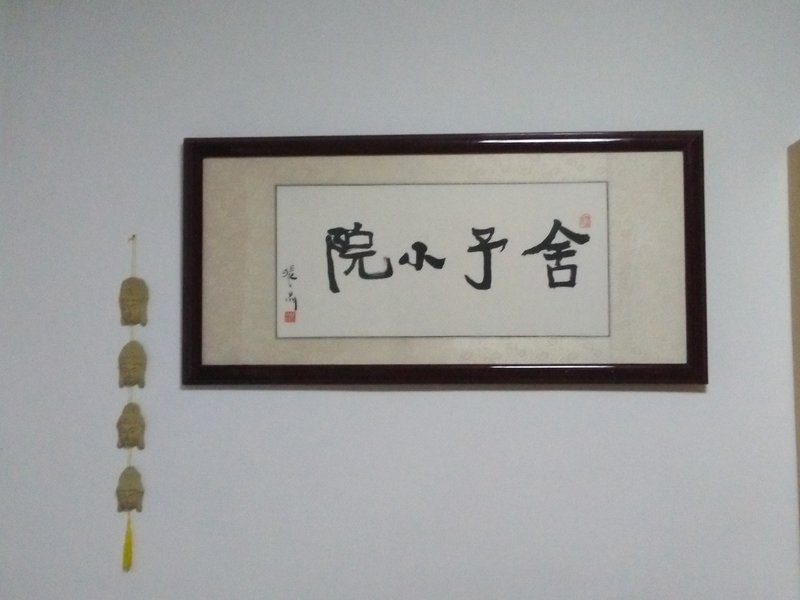 舍予小院